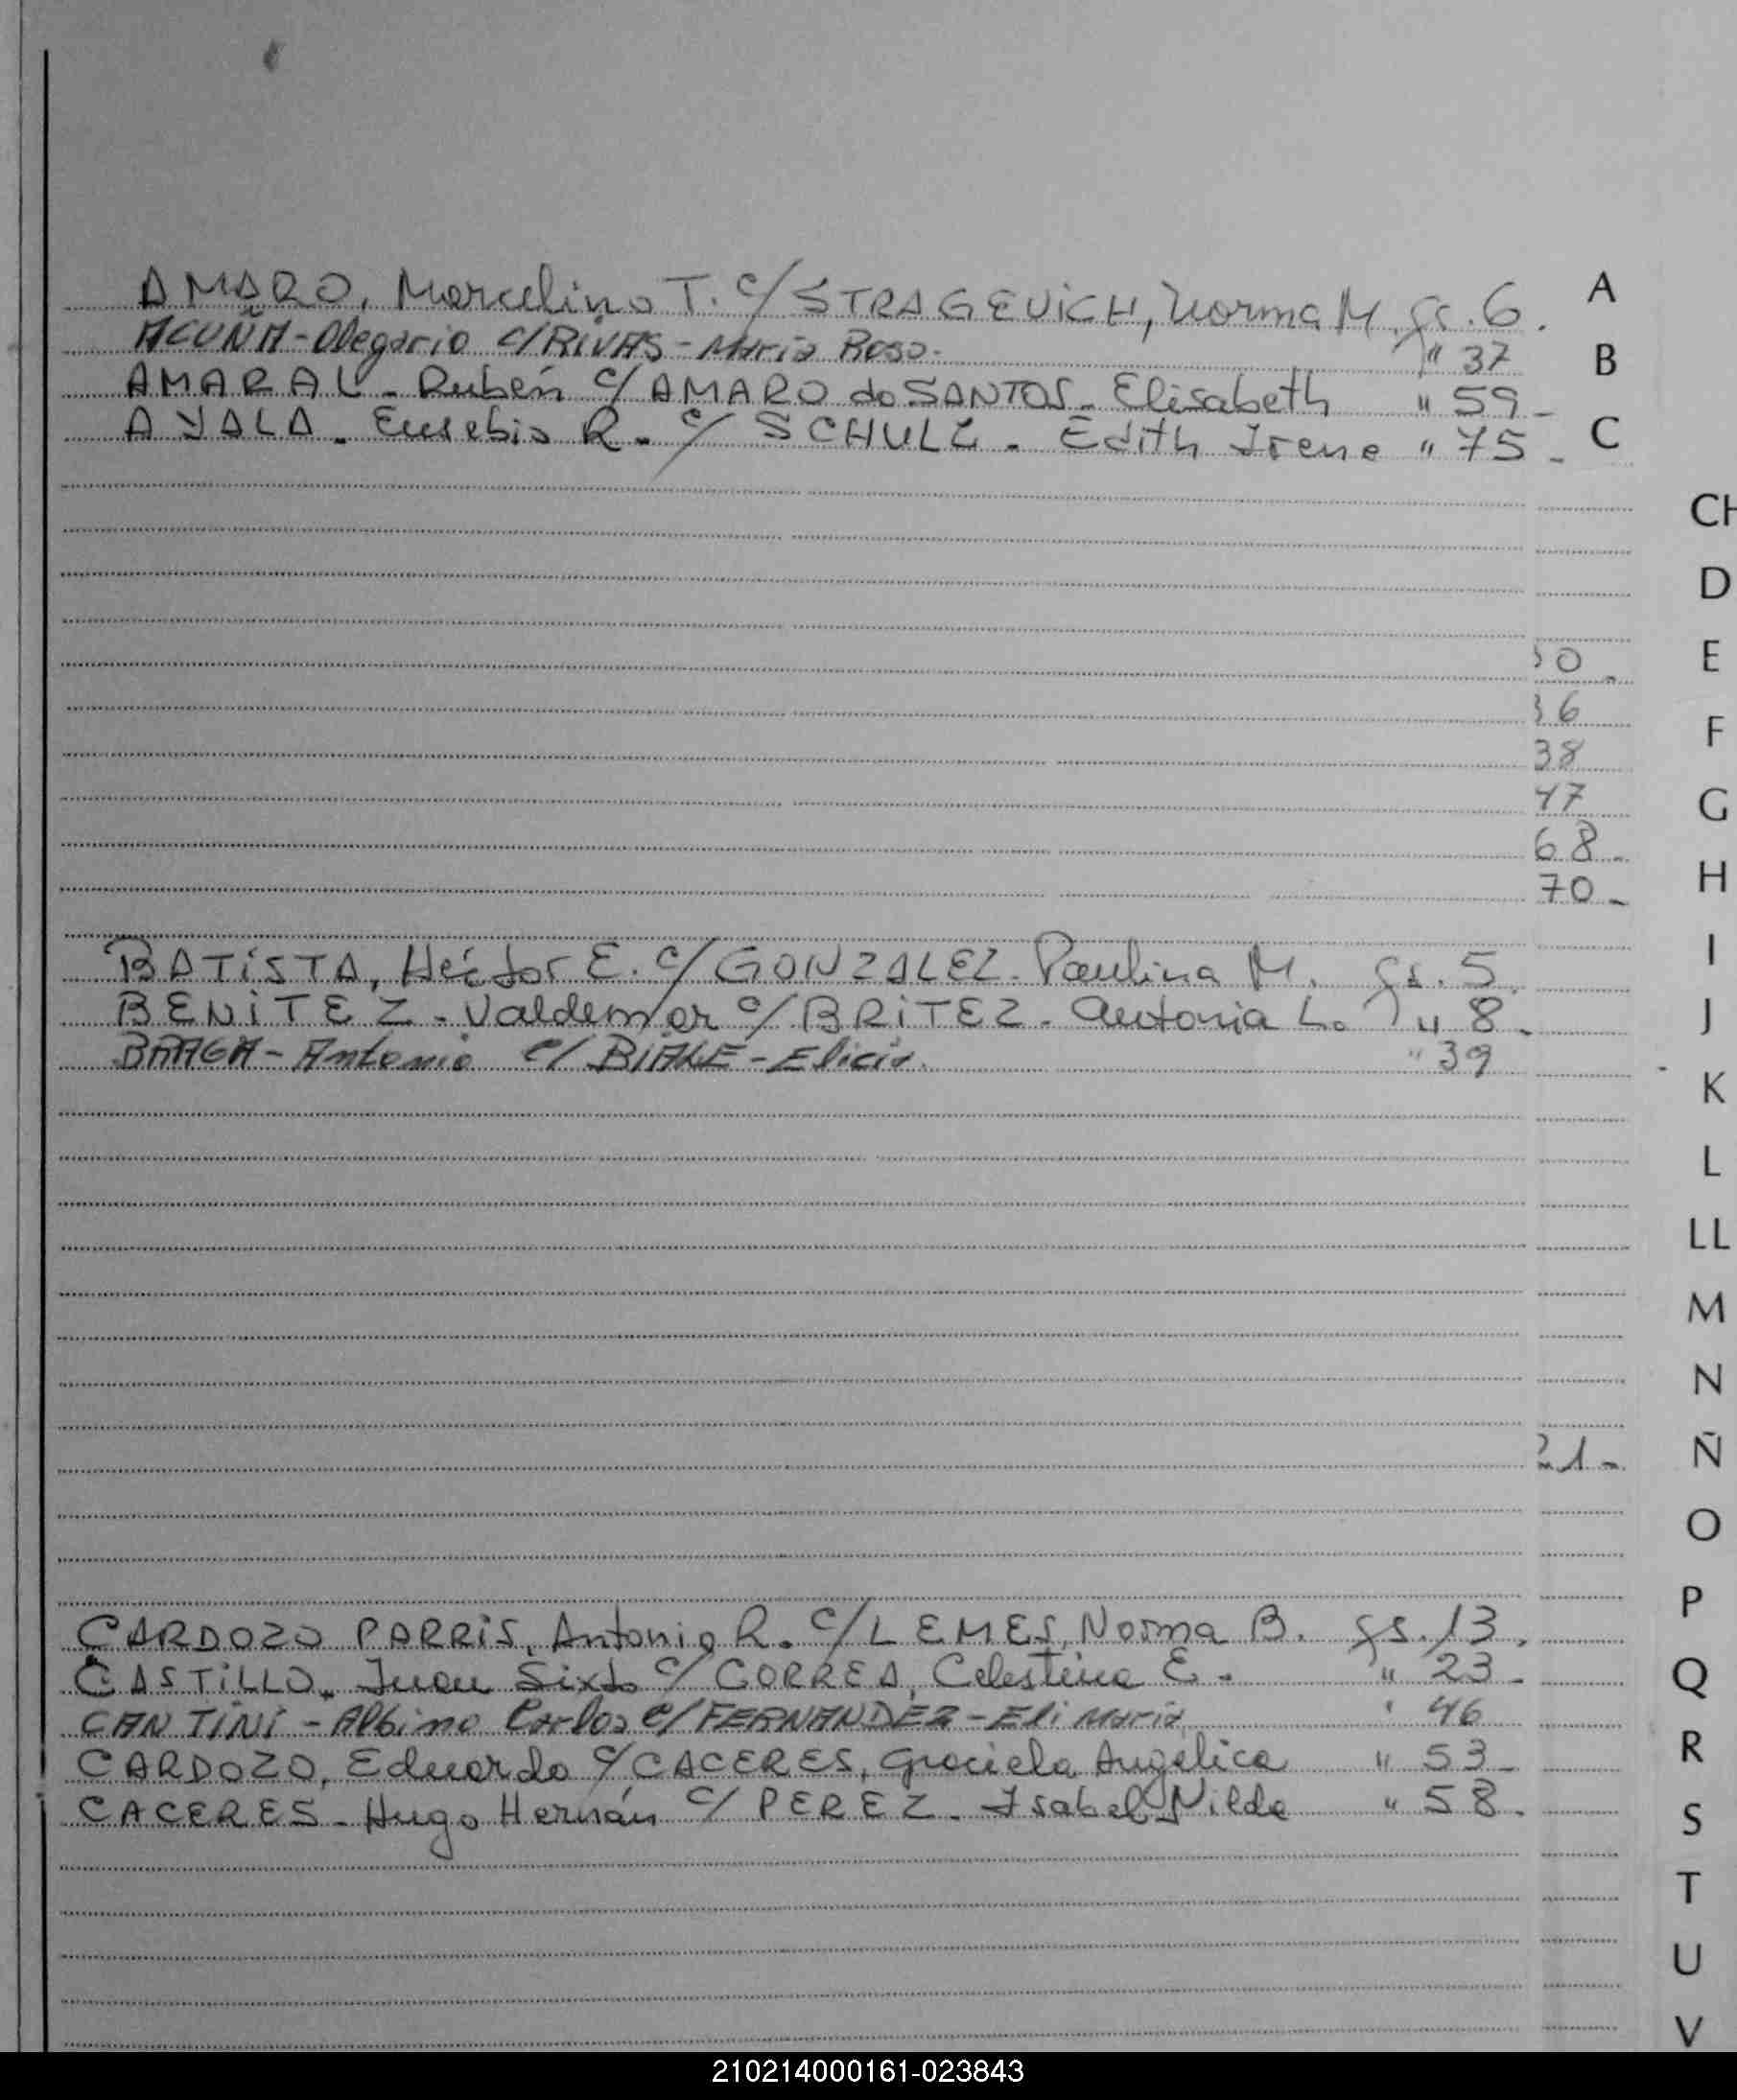 AMARO, Marcelino T. c/ STRAGEVICH, Norma M. fs. 6. A
ACUÑA - Olegario c/ RIVAS - Maria Rosa. " 37 B
AMARAL - Rubén c/ AMARO do SANTOS - Elisabeth " 59 -
AYALA - Eusebio R. - c/ SCHULZ - Edith Irene " 75 - C
CH
D
50 - E
36
F
38
47 G
68 -
70 - H
I
BATISTA, Héctor E. c/ GONZALEZ - Paulina M. fs. 5.
BENITEZ - Valdemar c/ BRITEZ - Antonia L. " 8. J
BRAGA - Antonio c/ - Elicia. " 39
K
L
LL
M
N
21 - Ñ
O
P
CARDOZO PARRIS, Antonio R. c/ LEMES, Norma B. fs. 13.
CASTILLO - Juan Sixto c/ CORREA, Celestina E. - " 23 - Q
CANTINI - Albino Carlos c/ FERNANDEZ - Eli Maria " 46
CARDOZO, Eduardo c/ CACERES, Graciela Angélica " 53 - R
CACERES - Hugo Hernán c/ PEREZ - Isabel Nilda " 58. S
T
U
V
210214000161-023843